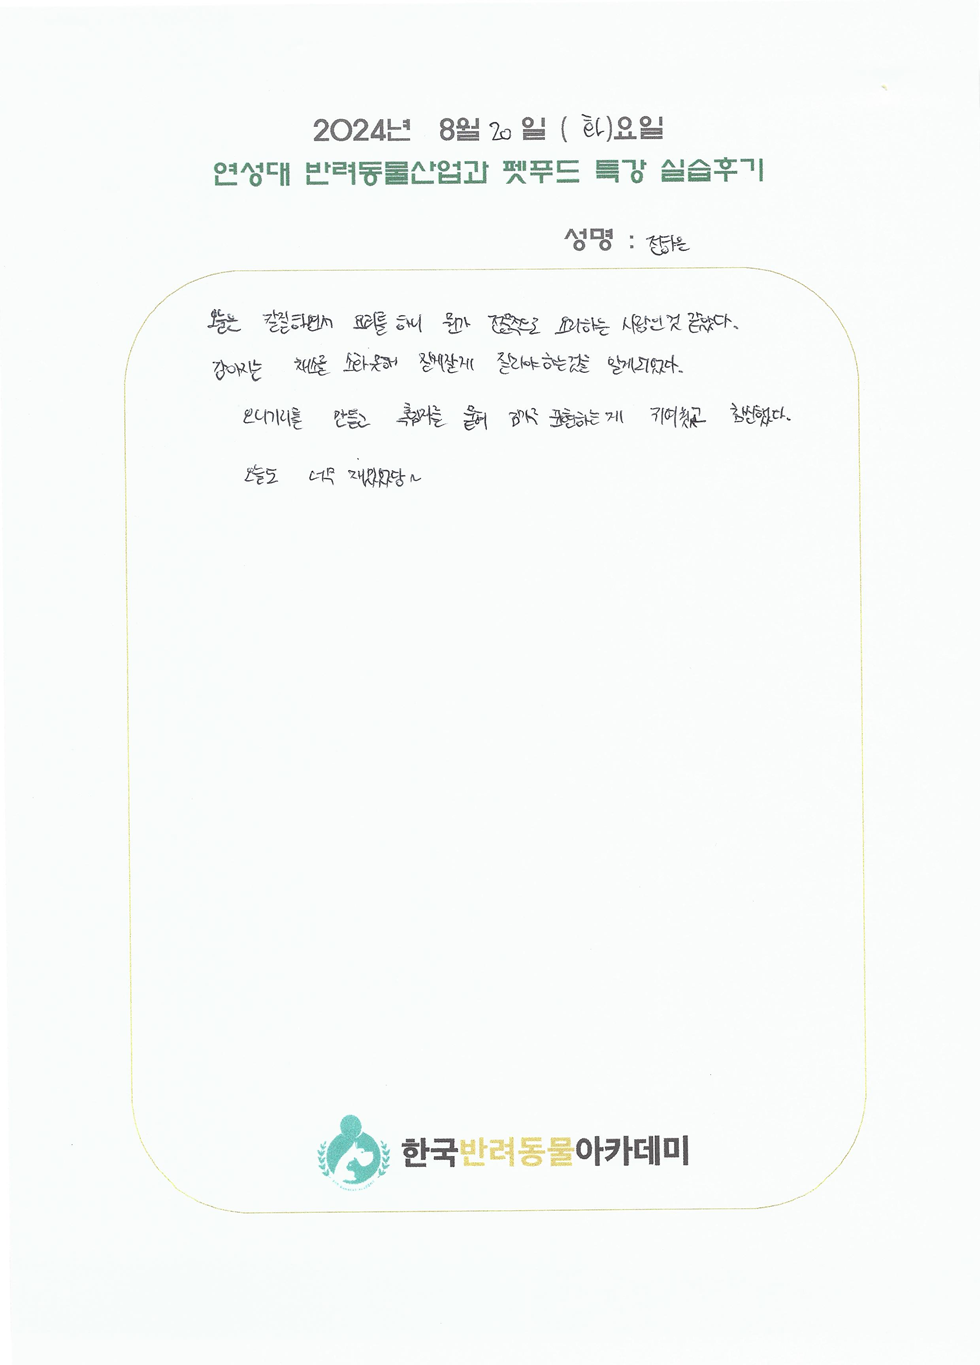 2024년 8월 20 일 ( 화)요일
연성대 반려동물산업과 펫푸드 특강 실습후기
성명 :
오늘은 칼질하면서 요리를 하니 뭔가 전문적으로 요리하는 사람인 것 같았다.
강아지는 채소를 소화 못해 잘게잘게 잘라야 하는것을 알게되었다.
오니기리를 만들고 흑임자를 묻혀 표현하는 게 귀여웠고 참신했다.
오늘도 너무 재밌었당~
한국반려동물아카데미